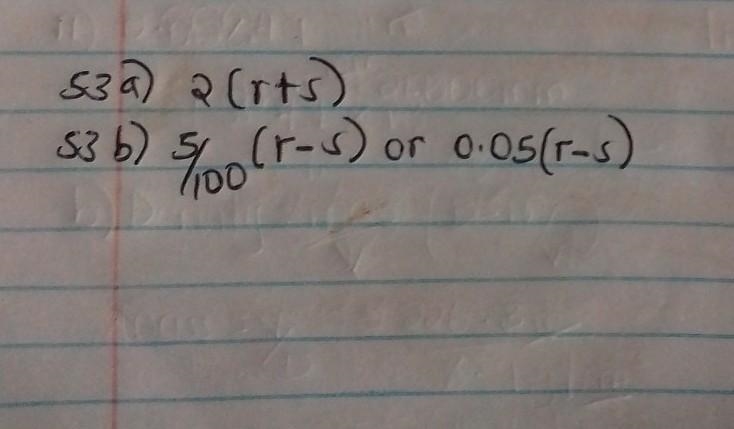 53a) 2(r+s)
53b) 5/100 (r-s) or 0.05(r-s)